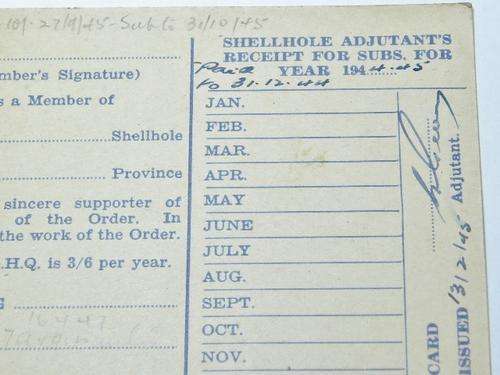 27/9/45 - Sub to 31/10/45
SHELLHOLE ADJUTANT'S
RECEIPT FOR SUBS. FOR
YEAR 1944-45
Paid
to 31.12.44
mber's Signature)
s a Member of
Shellhole
Province
sincere supporter of
of the Order. In
the work of the Order.
.H.Q. is 3/6 per year.
JAN.
FEB.
MAR.
APR.
MAY
JUNE
JULY
AUG.
SEPT.
OCT.
NOV.
Adjutant.
CARD
ISSUED 13/2/45